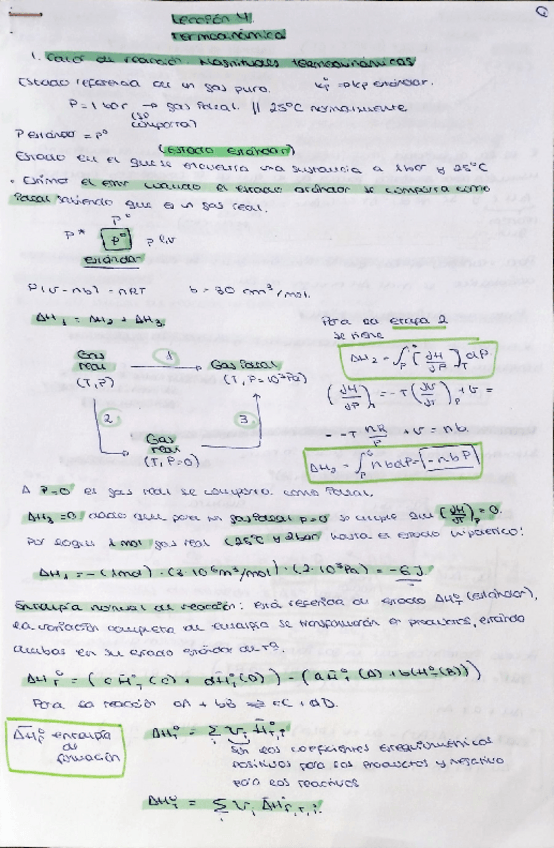 Lección 4.
Termodinámica
1. Calor de reacción. Magnitudes termodinámicas
Estado referencia de un gas puro. Kp° → Kp estándar.
P = 1 bar → gas ideal. || 25°C normalmente
(se comporta)
P estándar = P°
(Estado estándar)
Estado en el que se encuentra una sustancia a 1 bar y 25°C
· Estimar el error cuando el estado estándar se comporta como
ideal sabiendo que es un gas real.
P°
P* P° P
estándar
P(V-nb) = nRT b = 30 cm³/mol.
ΔH₁ = ΔH₂ + ΔH₃
Para la etapa 2
se tiene
Gas real (T, P)
1
Gas ideal (T, P=10⁵Pa)
2
3
Gas real (T, P=0)
ΔH₂ = ∫ (∂H/∂P)_T dP
(∂H/∂P) = -T(∂V/∂T)_P + V =
= -T nR/P + V = nb.
ΔH₂ = ∫ nb dP = -nbP
Δ P=0 el gas real se comporta como ideal.
ΔH₃ = 0 dado que para un gas ideal P=0 se cumple que (∂H/∂P) = 0.
ΔH₁ = -(1mol) ·
Entalpía normal de reacción: Está referida al estado ΔH_T° (estándar),
la variación completa de entalpía se transformarán a productos, estando
ambos en su estado estándar
ΔH_T° = (cH_T°(C) + dH_T°(D)) - (aH_T°(A) + bH_T°(B))
Para la reacción aA + bB ⇌ cC + dD.
ΔH_f° entalpía
de
formación
ΔH_T° = Σ νᵢ H°_T,i
Son los coeficientes estequiométricos
positivos para los productos y negativo
para los reactivos
ΔH_T° = Σ νᵢ ΔH°_f,T,i.